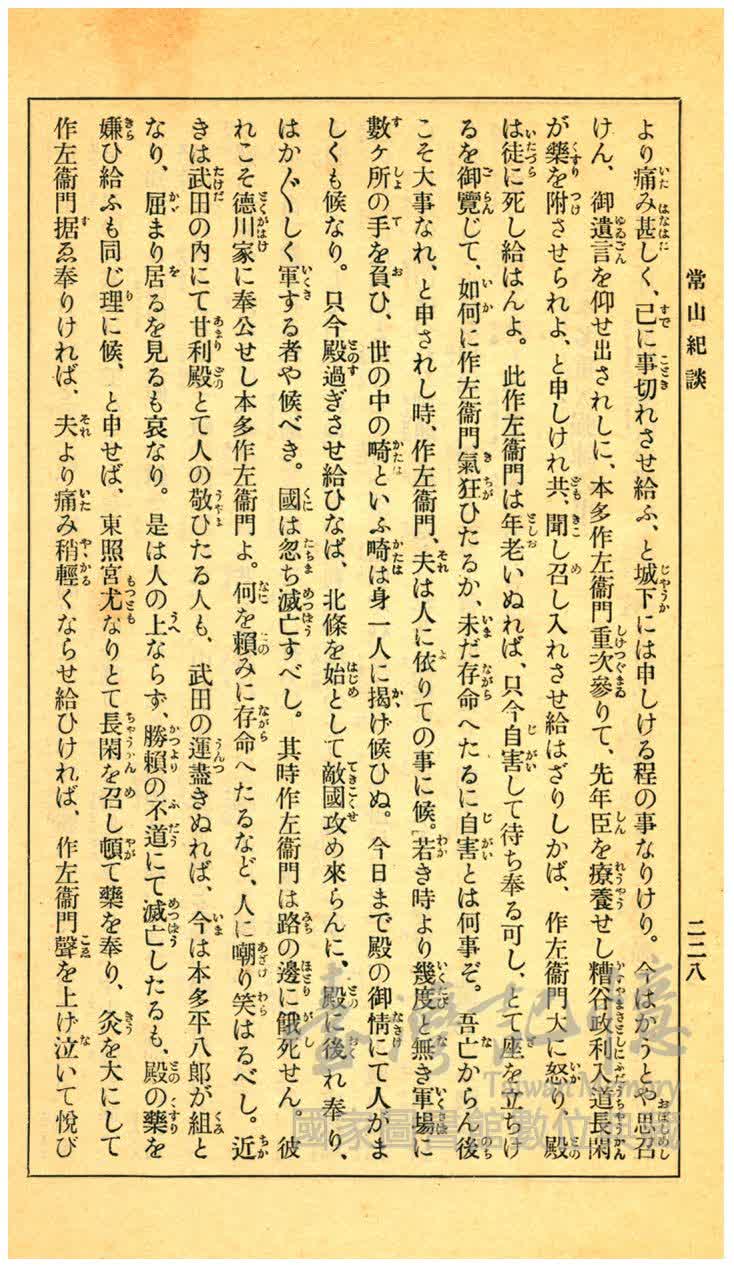 常山紀談
二二八
より痛み甚しく、已に事切れさせ給ふ、と城下には申しける程の事なりけり。今はかうとや思召
けん、御遺言を仰せ出されしに、本多作左衞門重次參りて、先年臣を療養せし糟谷政利入道長閑
が藥を附させられよ、と申しけれ共、聞し召し入れさせ給はざりしかば、作左衞門大に怒り、殿
は徒に死し給はんよ。此作左衞門は年老いぬれば、只今自害して待ち奉る可し、とて座を立ちけ
るを御覽じて、如何に作左衞門氣狂ひたるか、未だ存命へたるに自害とは何事ぞ。吾亡からん後
こそ大事なれ、と申されし時、作左衞門、夫は人に依りての事に候。若き時より幾度と無き軍場に
數ヶ所の手を負ひ、世の中の畸といふ畸は身一人に揭げ候ひぬ。今日まで殿の御情にて人がま
しくも候なり。只今殿過ぎさせ給ひなば、北條を始として敵國攻め來らんに、殿に後れ奉り、
はか〴〵しく軍する者や候べき。國は忽ち滅亡すべし。其時作左衞門は路の邊に餓死せん。彼
れこそ德川家に奉公せし本多作左衞門よ。何を賴みに存命へたるなど、人に嘲り笑はるべし。近
きは武田の內にて甘利殿とて人の敬ひたる人も、武田の運盡きぬれば、今は本多平八郎が組と
なり、屈まり居るを見るも哀なり。是は人の上ならず、勝賴の不道にて滅亡したるも、殿の藥を
嫌ひ給ふも同じ理に候、と申せば、東照宮尤なりとて長閑を召し頓て藥を奉り、灸を大にして
作左衞門据ゑ奉りければ、夫より痛み稍輕くならせ給ひければ、作左衞門聲を上げ泣いて悅び
臺灣記憶
Taiwan Memory
國家圖書館數位典藏